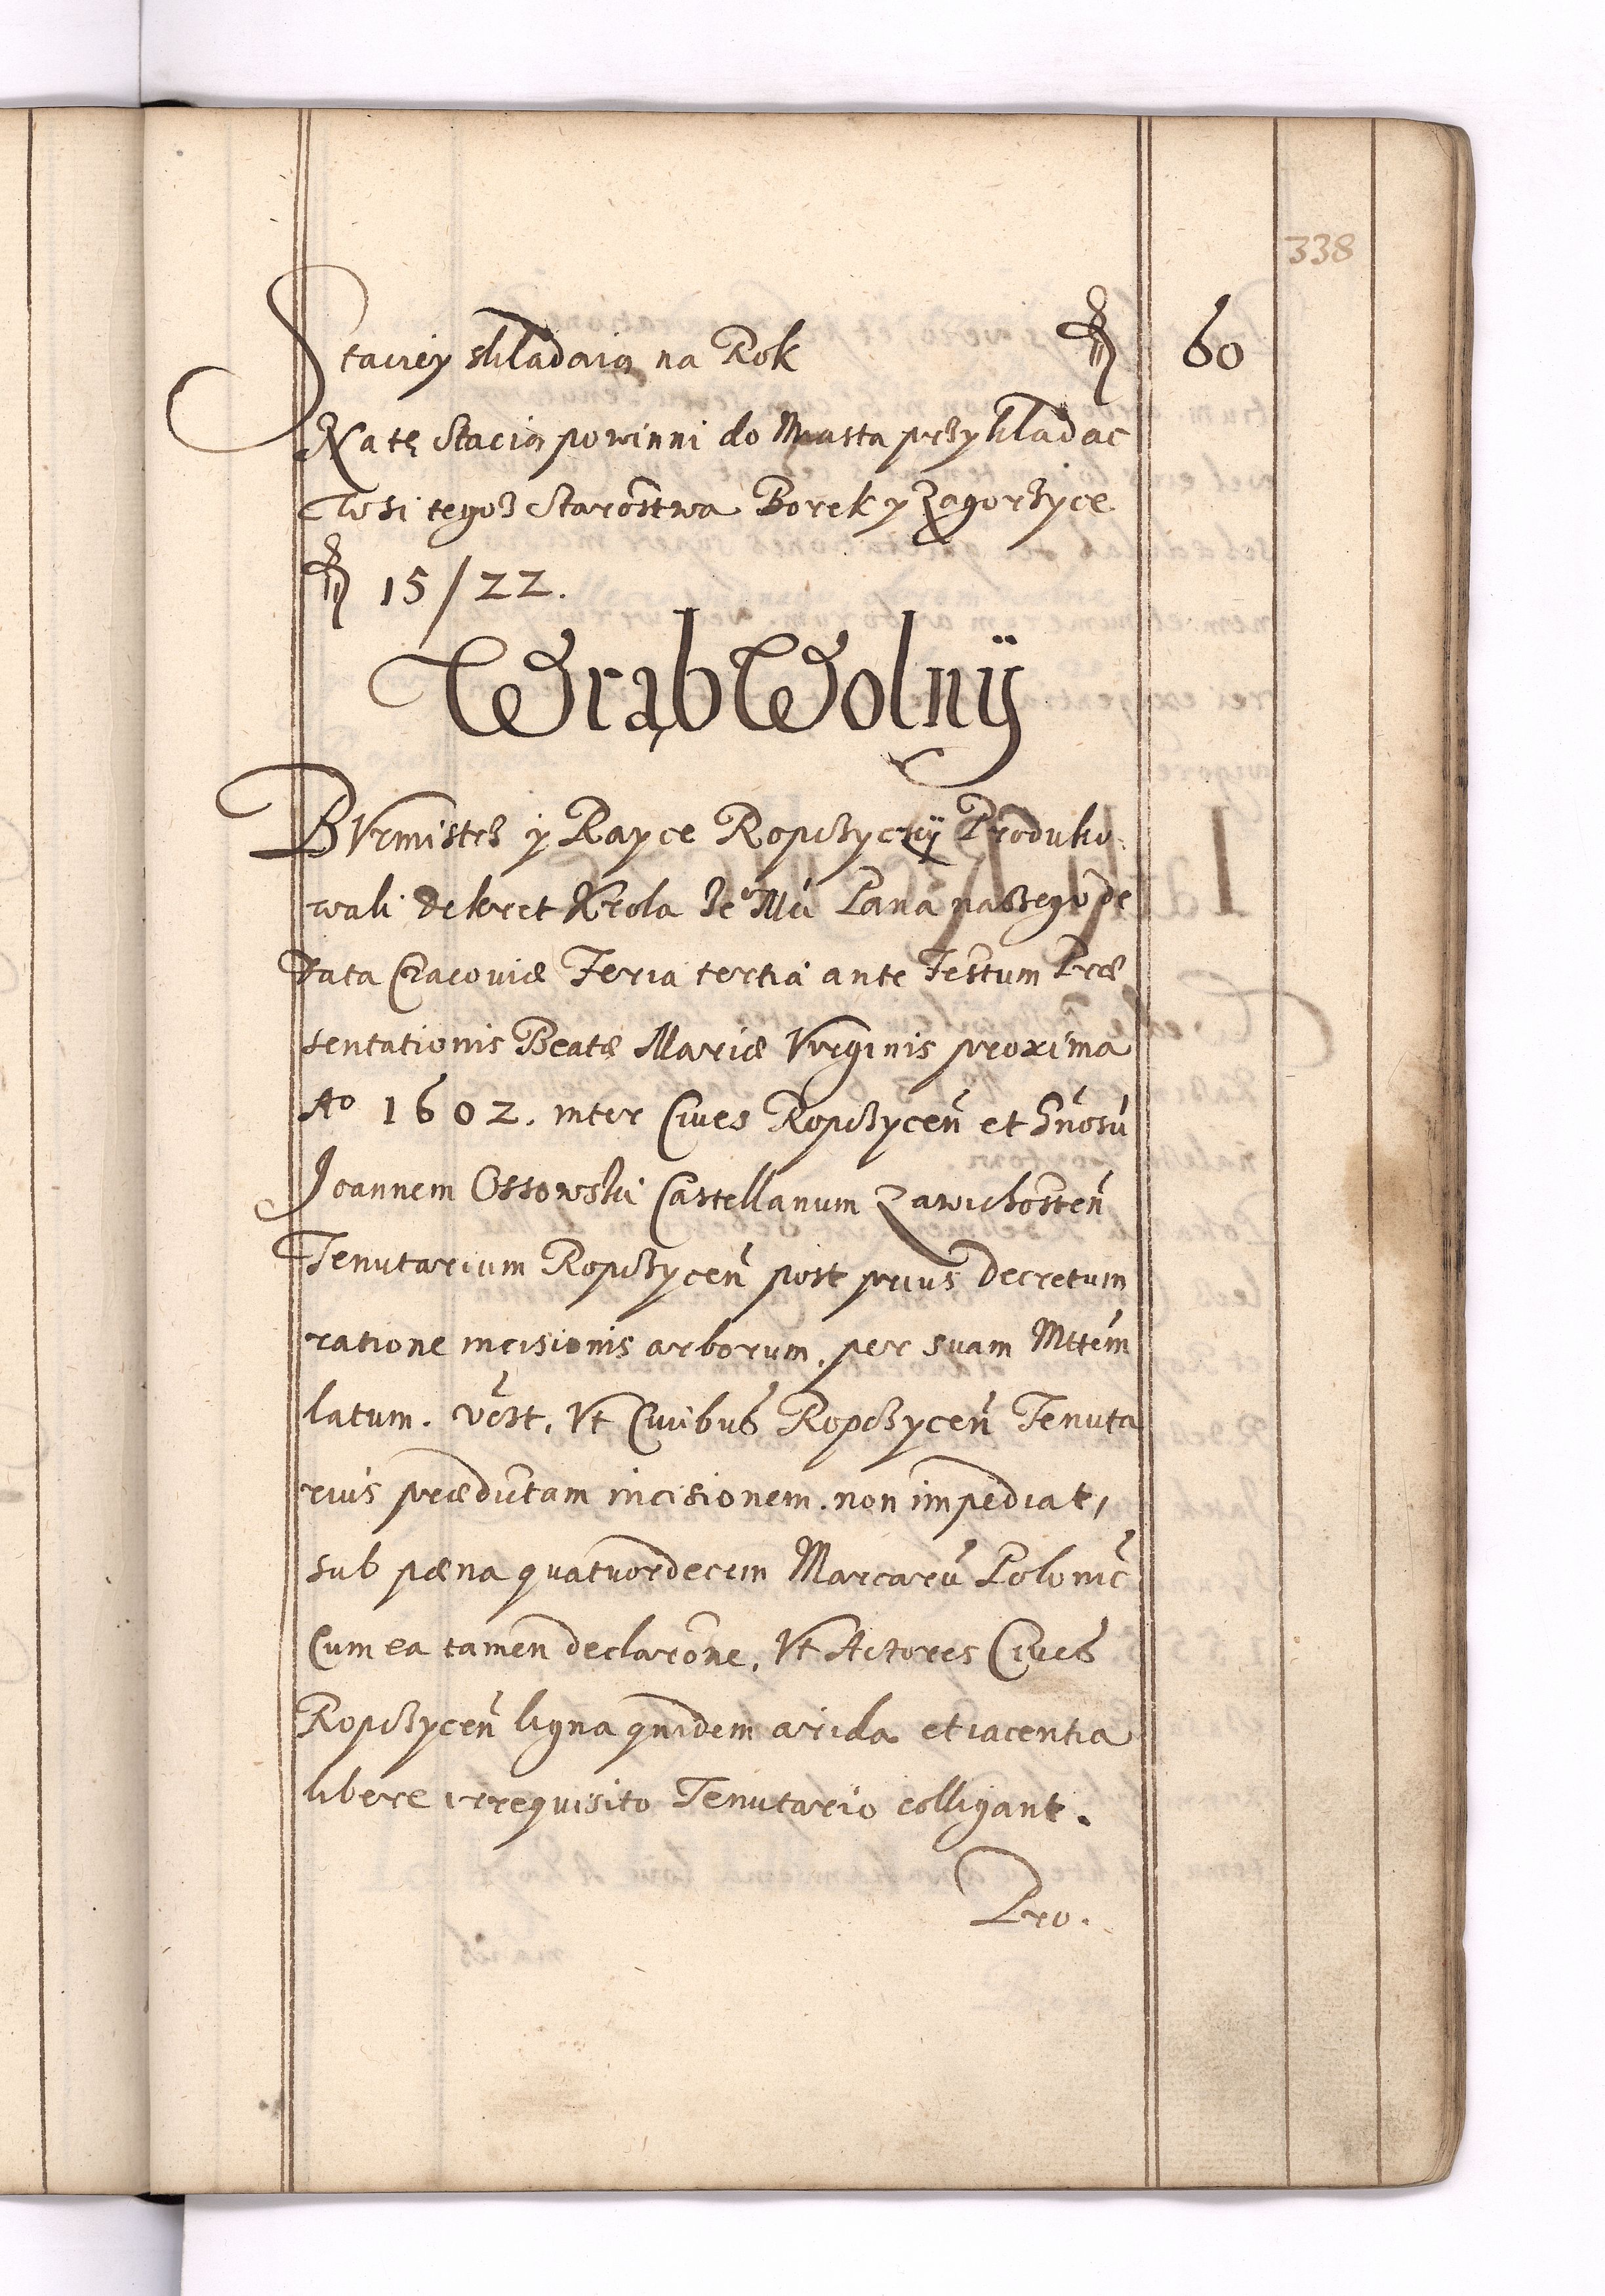 338
Staciey skladaią na Rok fl 60
Na tę Stacią powinni do Miasta przykladac
Wsi tegoż Starostwa Borek y Zagorzyce
fl 15/22.
Wrąb Wolnÿ
BVrmistrz y Rayce Ropczyczÿ Produko-
wali dekret Krola Je° Mći Pana naszego de
Data Cracouiæ Feria tertia ante Festum Præ
sentationis Beatæ Mariæ Virginis proxima
A° 1602. inter Ciues Ropczyceñ et Gñosu
Joannem Ossowski Castellanum Zawichosteñ
Tenutarium Ropczyceñ post prius decretum
ratione incisionis arborum, per suam Mttem
latum. vcst. Vt Ciuibus Ropczyceñ Tenuta
rius prædictam incisionem. non impediat,
sub pæna quatuordecim Marcarũ Polonic
Cum ea tamen declarõne, Vt Actores Ciues
Ropczyceñ ligna quidem arida et iacentia
libere irrequisito Tenutario colligant.
Pro.